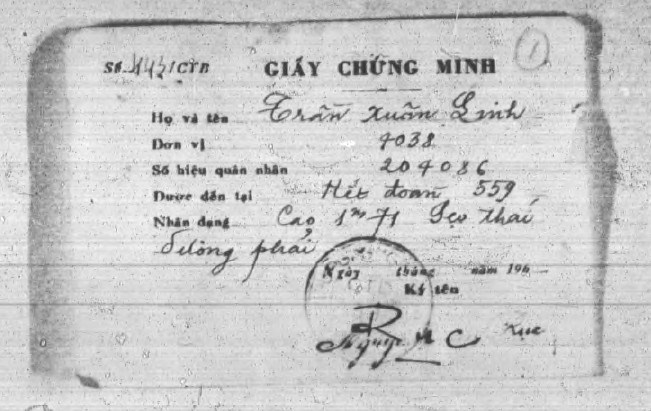 Số 1421CTB GIẤY CHỨNG MINH 1
Họ và tên Trần Xuân Linh
Đơn vị 4038
Số hiệu quân nhân 204086
Được đến tại Hết đoàn 559
Nhân dạng Cao 1m71 Sẹo thái
dương phải
Ngày tháng năm 196
Ký tên